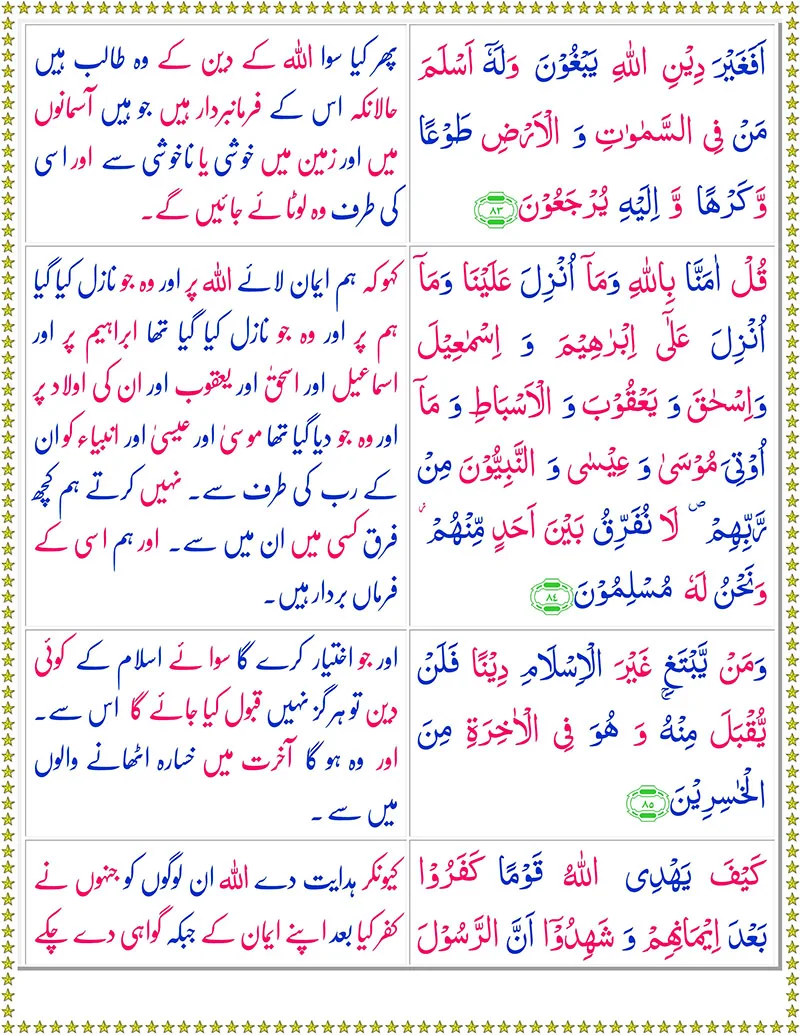 اَفَغَيْرَ دِيْنِ اللّٰهِ يَبْغُوْنَ وَلَهٗۤ اَسْلَمَ
مَنْ فِى السَّمٰوٰتِ وَ الْاَرْضِ طَوْعًا
وَّكَرْهًا وَّ اِلَيْهِ يُرْجَعُوْنَ ۸۳
پھر کیا سوا اللہ کے دین کے وہ طالب ہیں
حالانکہ اس کے فرمانبردار ہیں جو ہیں آسمانوں
میں اور زمین میں خوشی یا ناخوشی سے اور اسی
کی طرف وہ لوٹائے جائیں گے۔
قُلْ اٰمَنَّا بِاللّٰهِ وَمَاۤ اُنْزِلَ عَلَيْنَا وَمَاۤ
اُنْزِلَ عَلٰٓى اِبْرٰهِيْمَ وَ اِسْمٰعِيْلَ
وَاِسْحٰقَ وَ يَعْقُوْبَ وَ الْاَسْبَاطِ وَ مَاۤ
اُوْتِىَ مُوْسٰى وَ عِيْسٰى وَ النَّبِيُّوْنَ مِنْ
رَّبِّهِمْ ۖ لَا نُفَرِّقُ بَيْنَ اَحَدٍ مِّنْهُمْ ؗ
وَنَحْنُ لَهٗ مُسْلِمُوْنَ ۸۴
کہو کہ ہم ایمان لائے اللہ پر اور وہ جو نازل کیا گیا
ہم پر اور وہ جو نازل کیا گیا تھا ابراہیم پر اور
اسماعیل اور اسحٰق اور یعقوب اور ان کی اولاد پر
اور وہ جو دیا گیا تھا موسیٰ اور عیسیٰ اور انبیاء کو ان
کے رب کی طرف سے۔ نہیں کرتے ہم کچھ
فرق کسی میں ان میں سے۔ اور ہم اسی کے
فرماں بردار ہیں۔
وَمَنْ يَّبْتَغِ غَيْرَ الْاِسْلَامِ دِيْنًا فَلَنْ
يُّقْبَلَ مِنْهُ ۚ وَ هُوَ فِى الْاٰخِرَةِ مِنَ
الْخٰسِرِيْنَ ۸۵
اور جو اختیار کرے گا سوائے اسلام کے کوئی
دین تو ہرگز نہیں قبول کیا جائے گا اس سے۔
اور وہ ہو گا آخرت میں خسارہ اٹھانے والوں
میں سے ۔
كَيْفَ يَهْدِى اللّٰهُ قَوْمًا كَفَرُوْا
بَعْدَ اِيْمَانِهِمْ وَ شَهِدُوْۤا اَنَّ الرَّسُوْلَ
کیونکر ہدایت دے اللہ ان لوگوں کو جنہوں نے
کفر کیا بعد اپنے ایمان کے جبکہ گواہی دے چکے